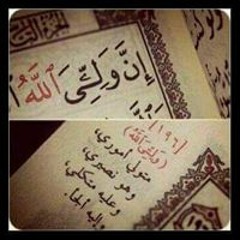 إِنَّ وَلِـِّۧيَ ٱللَّهُ
[١٩٦]
(وَلِـِّۧيَ ٱللَّهُ)
متولي أموري،
وهو نصيري،
وعليه متكلي،
وإليه ألجأ